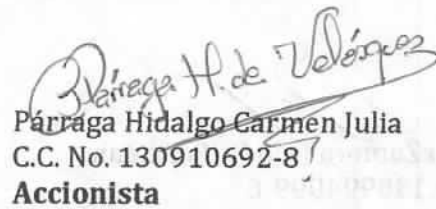 Párraga H. de Velásquez
Párraga Hidalgo Carmen Julia
C.C. No. 130910692-8
Accionista